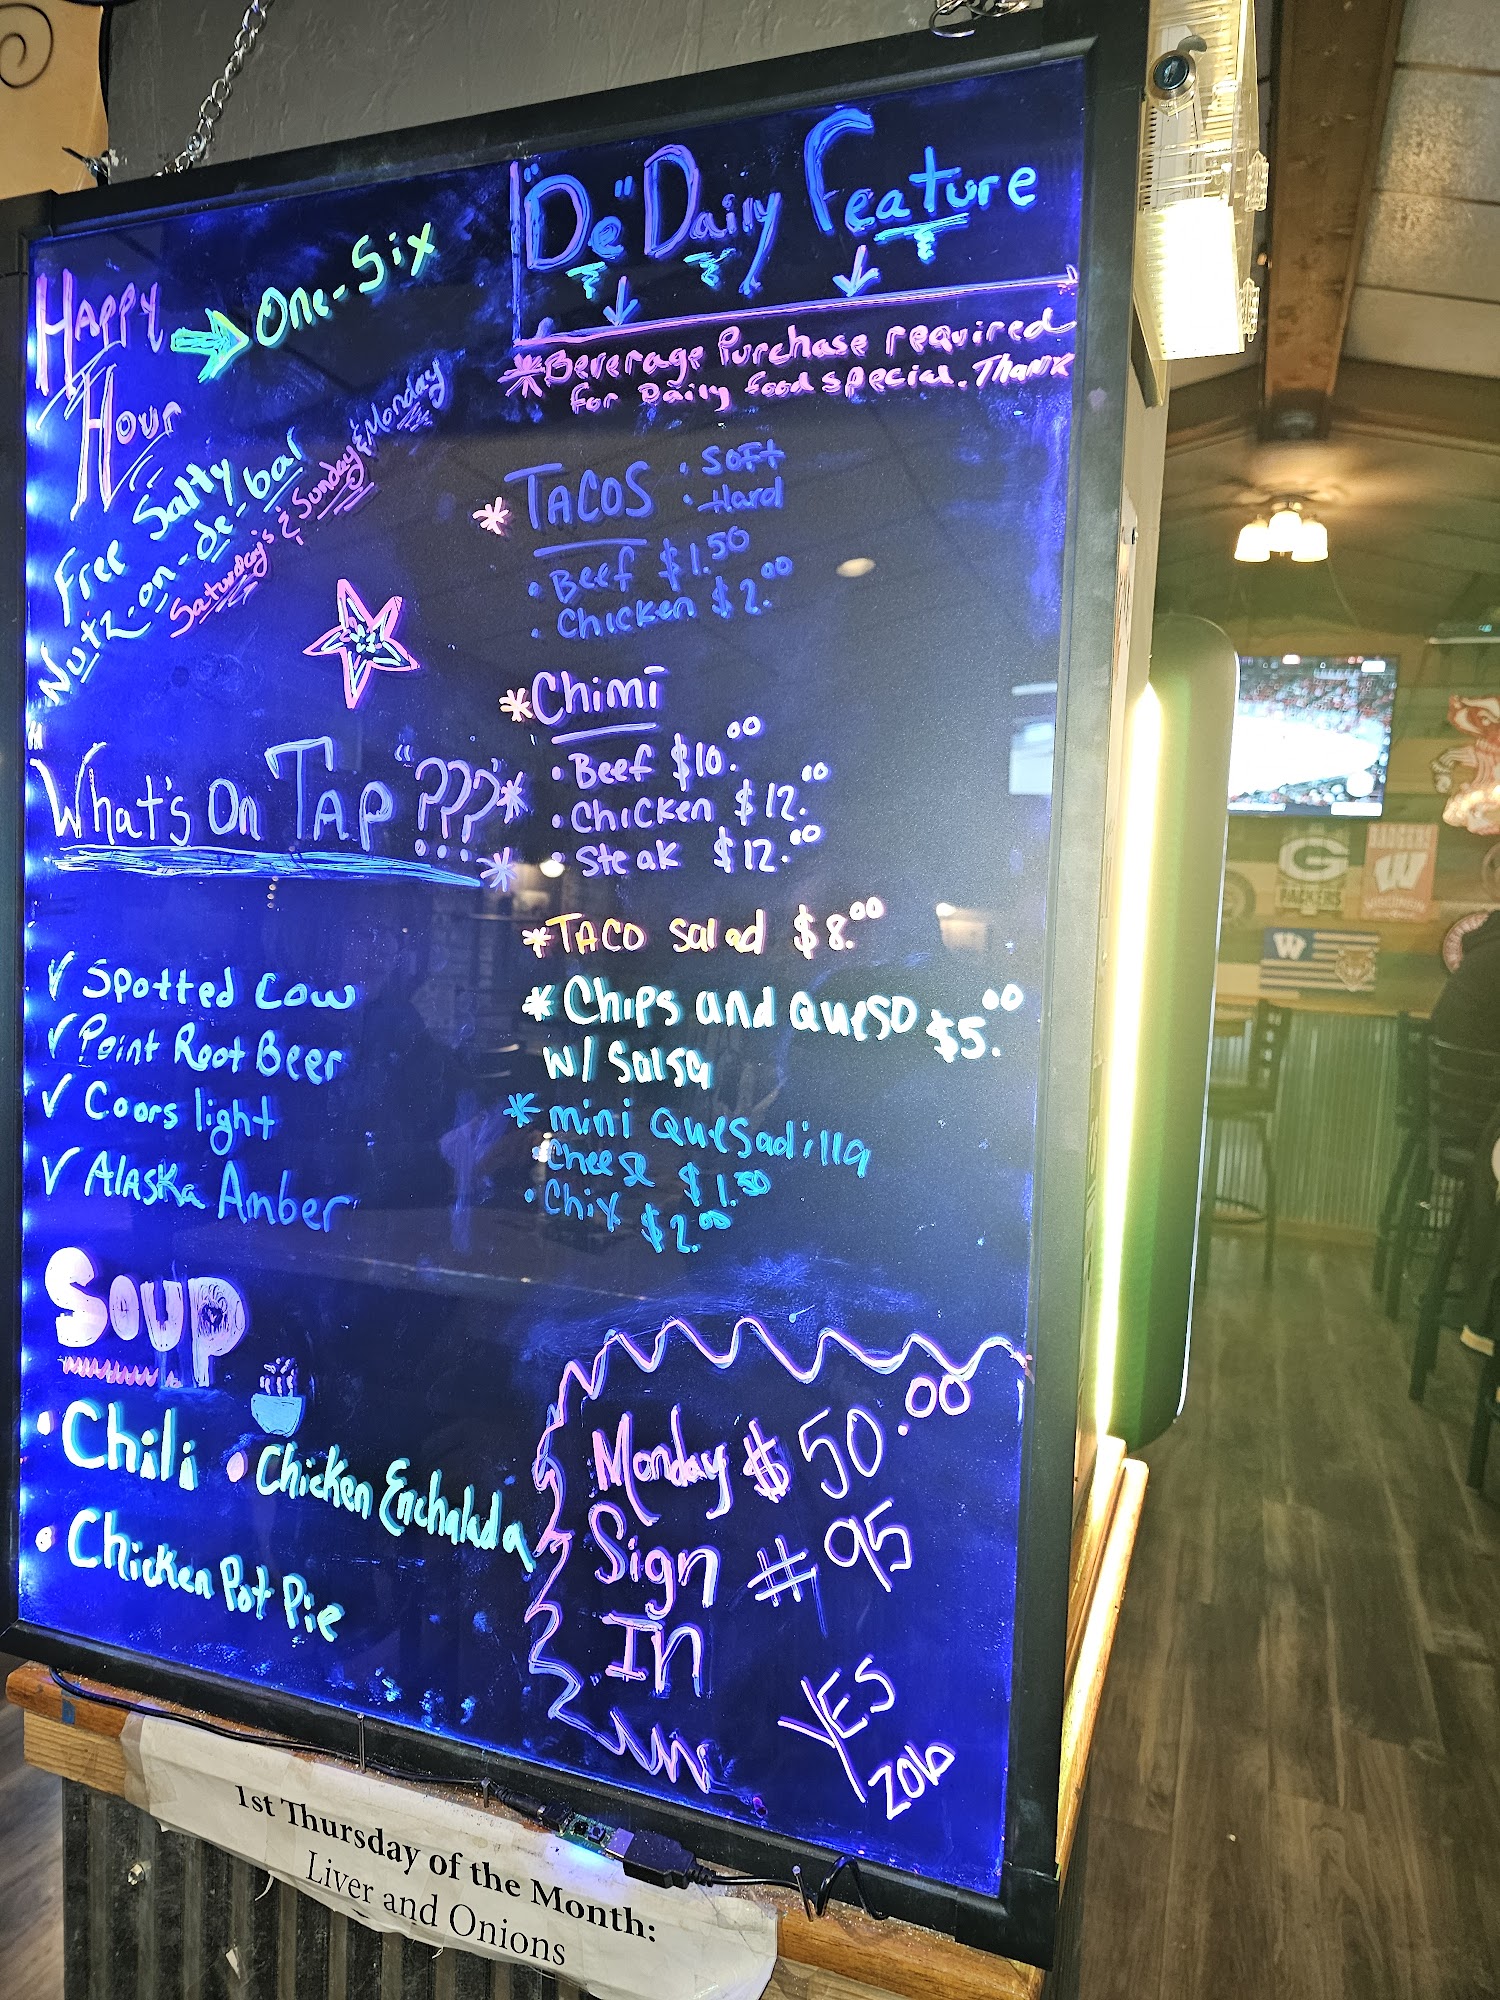 Happy
Hour
One-Six
Free Salty
Nutz-on-de-bar
Saturday's & Sunday & Monday
"What's On Tap "???"
✓ Spotted Cow
✓ Point Root Beer
✓ Coors light
✓ Alaska Amber
Soup
• Chili • Chicken Enchalada
• Chicken Pot Pie
"De" Daily Feature
*Beverage Purchase required
for Daily food special. Thank
* TACOS • Soft
• Hard
• Beef $1.50
• Chicken $2.00
*Chimi
• Beef $10.00
• Chicken $12.00
• Steak $12.00
*TACO Salad $8.00
* Chips and Queso $5.00
w/ Salsa
* mini Quesadilla
• Cheese $1.50
• Chix $2.00
Monday $50.00
Sign #95
In
YES
1st Thursday of the Month:
Liver and Onions
G
PACKERS
BADGERS
W
WISCONSIN
W